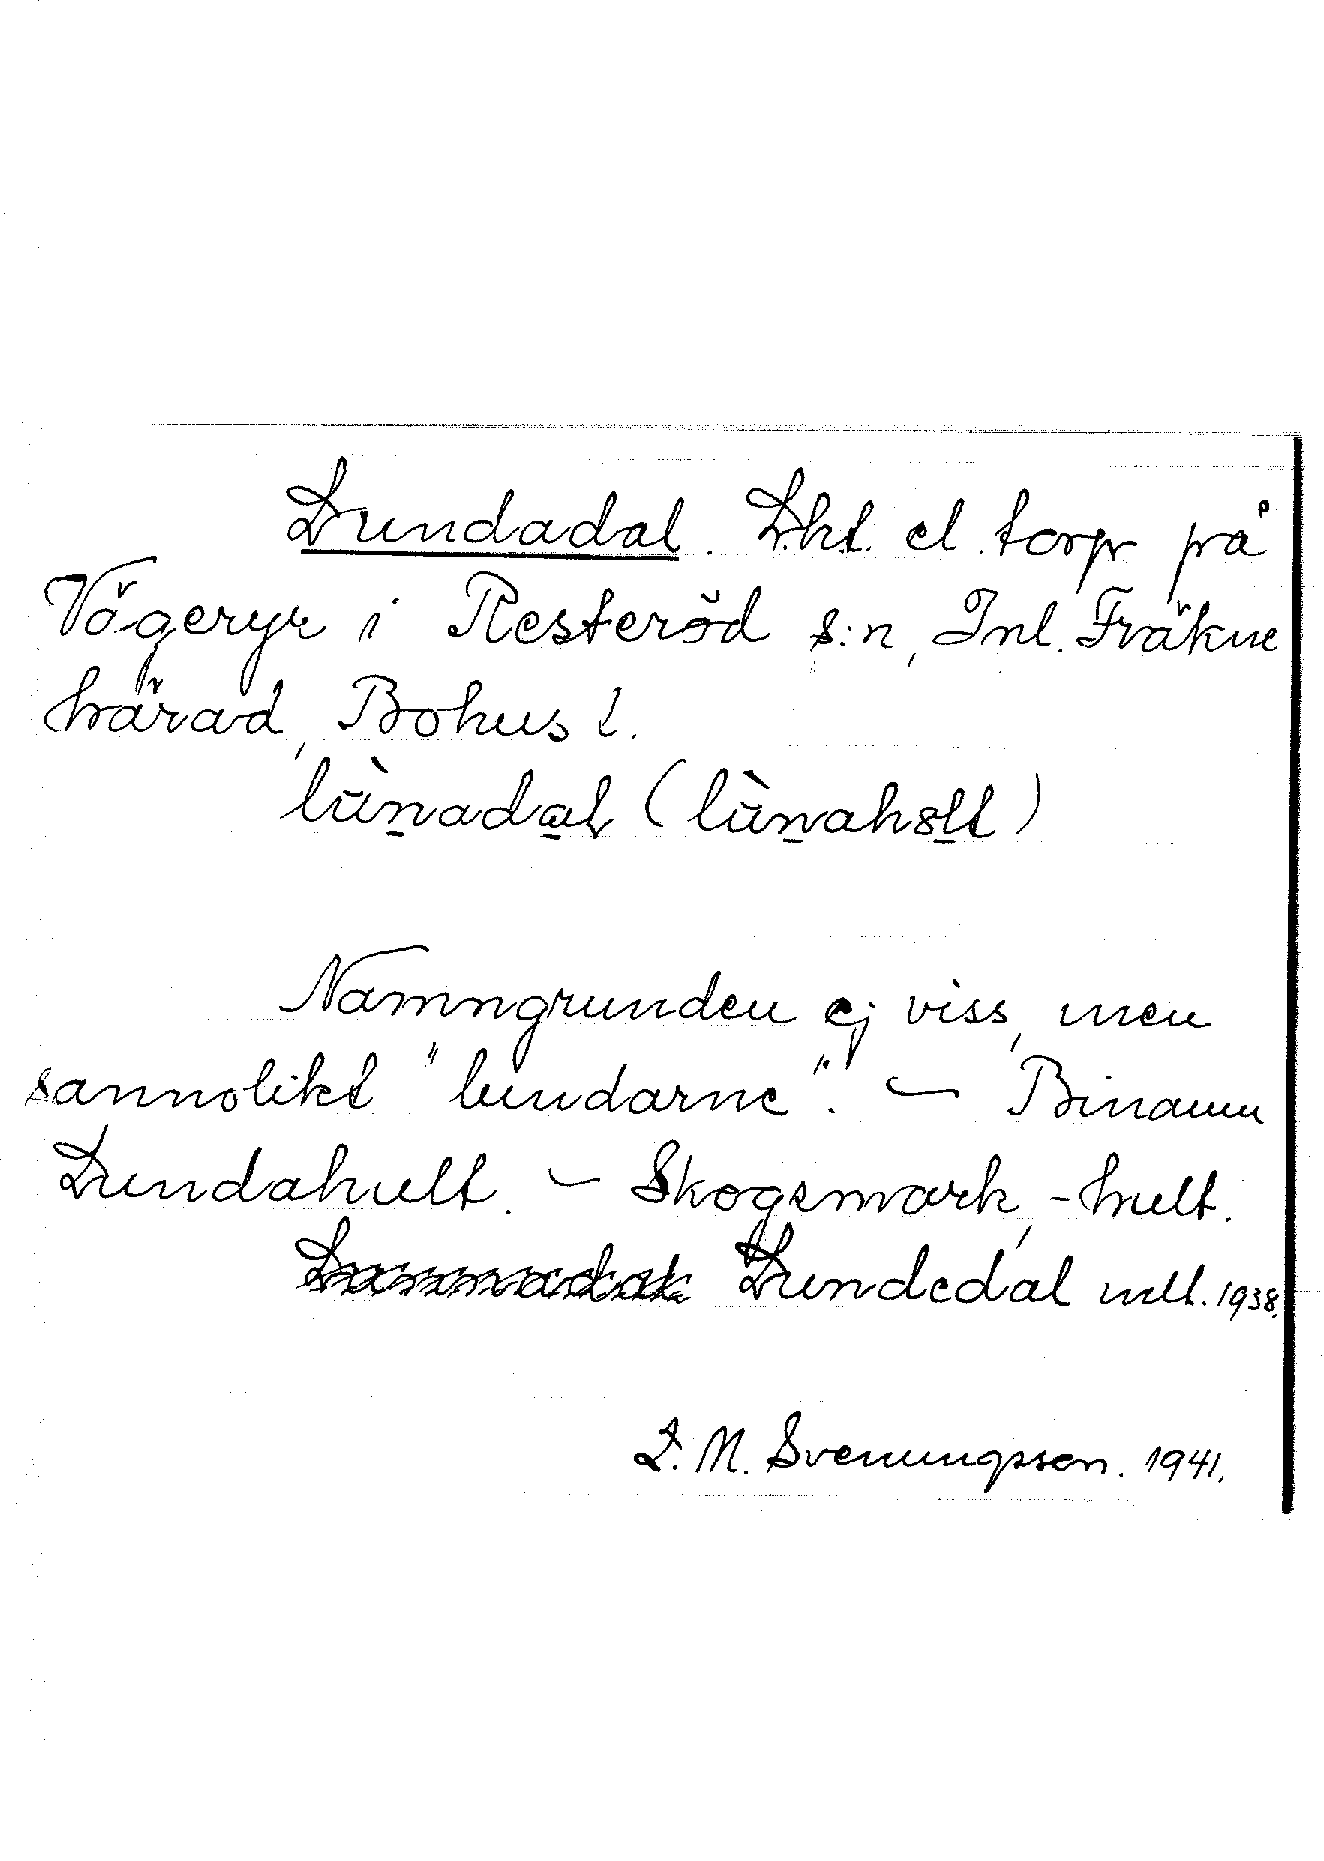 Lundadal. Lht. el. torp på
Vägeryr i Resteröd s:n, Inl. Fräkne
härad, Bohus l.
lùnadal (lùnahslt)
Namngrunden ej viss, men
sannolikt "lundarne". – Binamn
Lundahult. – Skogsmark, -hult.
Lundedal mtl. 1938.
L. M. Svenungsson. 1941.